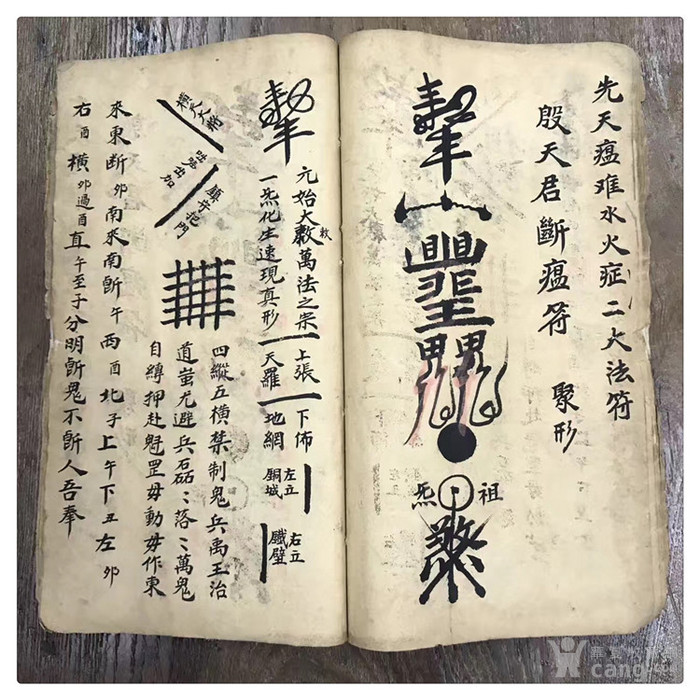 先天瘟难水火症二大法符
殷天君斷瘟符 聚形
祖炁
元始大敕萬法之宗
一炁化生速現真形
上張
天羅
下佈
地網
左立
銅城
右立
鐵壁
把門
四縱五橫禁制鬼兵禹王治
道蚩尤避兵磊〻落〻萬鬼
自縛押赴魁罡毋動毋作東
來東断卯南來南斷午西酉北子上午下丑左卯
右酉橫卯過酉直午至子分明斷鬼不斷人吾奉